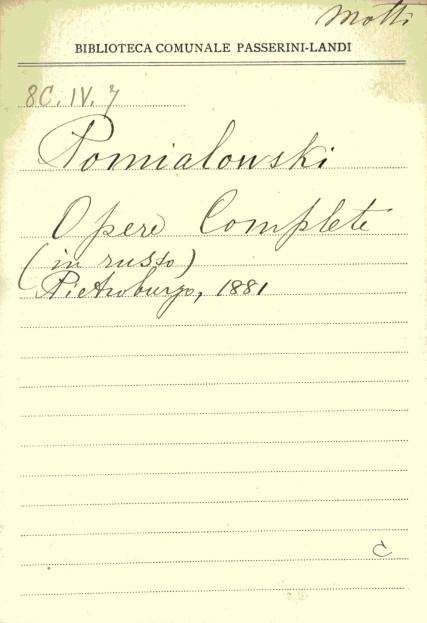 Motti
BIBLIOTECA COMUNALE PASSERINI-LANDI
8C. IV. 7
Pomialowski
Opere Complete
(in russo)
Pietroburgo, 1881
C